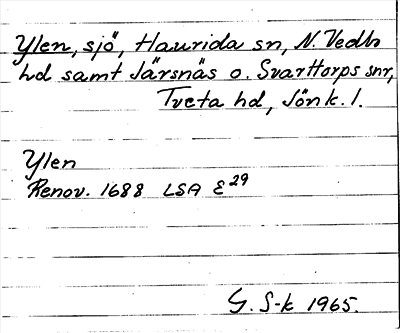 Ylen, sjö, Haurida sn, N. Vedbo
hd samt Järsnäs o. Svarttorps snr,
Tveta hd, Jönk. l.
Ylen
Renov. 1688 LSA E29
G. S-k 1965.